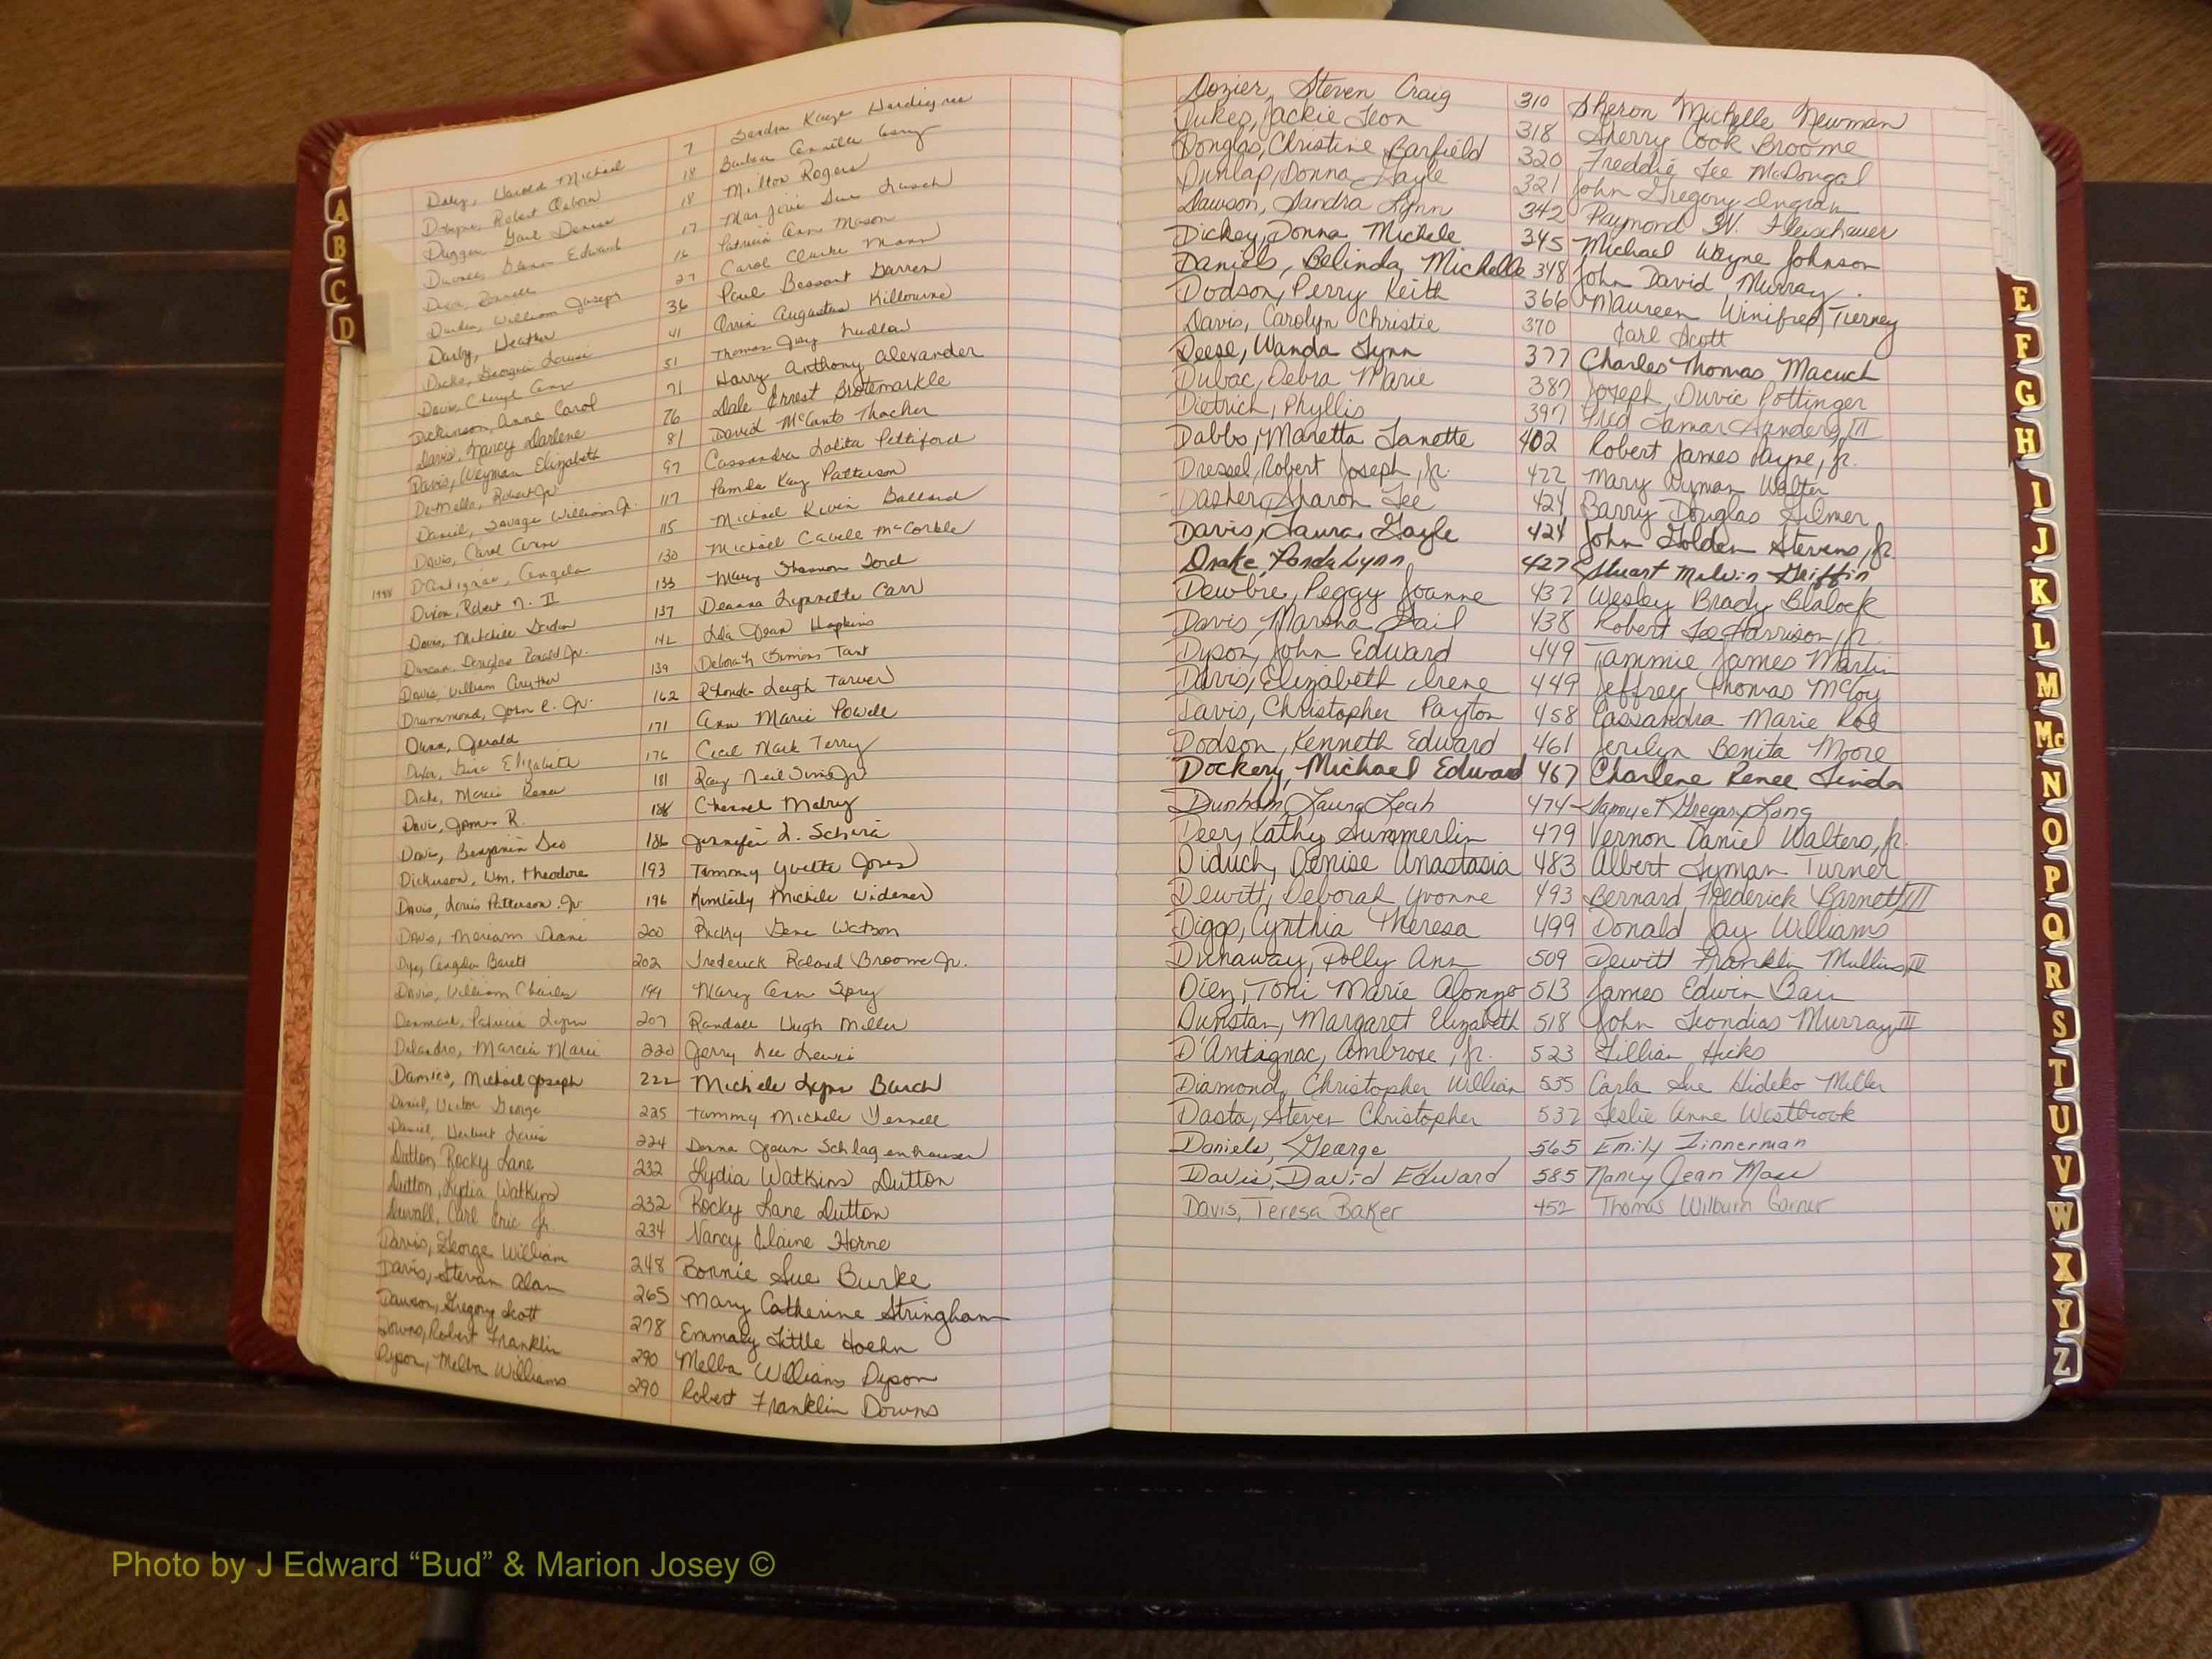 A
B
C
D
Daley, Harold Michael 7 Sandra Kaye Hardigree
Robert Osborn 18 Barbara
Duggan, Gail Denise 18 Milton Rogers
Edward 17 Marjorie Sue
16 Patricia Ann Mason
Durden, William Joseph 27 Carol Clarke Mann
Darby, Heather 36 Paul Bessant Darren
Georgia Louise 41 Orrin Augustus Kilbourne
Davis, Cheryl Ann 51 Thomas Jay Ludlow
Dickinson, Anne Carol 71 Harry Anthony Alexander
Davis, Nancy Darlene 76 Dale Ernest Brotemarkle
Davis, Weyman Elizabeth 81 David McCants Thacher
DeMello, Robert Jr. 97 Cassandra Lolita Pettiford
Daniel, Savage William Jr. 117 Pamela Kay Patterson
Davis, Carol Anne 115 Michael Kevin Ballard
1988 D'Antignac, Angela 130 Michael Cavell McCorkle
Dixon, Robert N. II 133 Mary Shannon Ford
Davis, Mitchell 137 Deanna Lynnette Carr
Duncan, Douglas Ronald Jr. 142 Lila Jean Hopkins
Davis, William Aruther 139 Deborah Simons Tant
Drummond, John C. Jr. 162 Rhonda Leigh Tarver
Dunn, Gerald 171 Ann Marie Powell
Elizabeth 176 Cecil Mark Terry
Dicks, Marcia Renee 181 Ray Neil Sims Jr
Davis, James R. 186 Channel Mabry
Davis, Benjamin Geo 186 Jennifer L.
Dickerson, Wm. Theodore 193 Tammy Yvette Jones
Davis, Louis Patterson Jr 196 Kimberly Michele Widener
Davis, Meriam Diane 200 Ricky Gene Watson
Dye, Angela Barett 202 Frederick Roland Broome Jr.
Davis, William Charles 199 Mary Ann Spry
Denmark, Patricia Lynn 207 Randall Hugh Miller
Dalandro, Marcia Marie 220 Jerry Lee Lewis
Damico, Michael Joseph 222 Michele Lynn Burch
Daniel, Victor George 225 Tammy Michele Yennell
Daniel, Herbert Louis 224 Donna Jean Schlagenhauser
Dutton, Rocky Lane 232 Lydia Watkins Dutton
Dutton, Lydia Watkins 232 Rocky Lane Dutton
Duvall, Carl Eric Jr. 234 Nancy Elaine Horne
Davis, George William 248 Bonnie Sue Burke
Davis, Steven Alan 265 Mary Catherine Stringham
Dawson, Gregory Scott 278 Emmaly Little Hoehn
Downs, Robert Franklin 290 Melba Williams Dyson
Dyson, Melba Williams 290 Robert Franklin Downs
Dozier, Steven Craig 310 Sheron Michelle Newman
Dukes, Jackie Leon 318 Sherry Cook Broome
Douglas, Christine Barfield 320 Freddie Lee McDougal
Dunlap, Donna Gayle 321 John Gregory Ingram
Dawson, Sandra Lynn 342 Raymond W. Fleischauer
Dickey, Donna Michele 345 Michael Wayne Johnson
Daniels, Belinda Michelle 348 John David Murray
Dodson, Perry Keith 366 Maureen Winifred Tierney
Davis, Carolyn Christie 370 Carl Scott
Deese, Wanda Lynn 377 Charles Thomas Macuch
Dubac, Debra Marie 387 Joseph Duvic Pottinger
Dietrich, Phyllis 397 Fred Lamar Sanders, III
Dabbs, Maretta Janette 402 Robert James Payne, Jr.
Dressel, Robert Joseph, Jr. 422 Mary Wyman Walter
Dasher, Sharon Lee 424 Barry Douglas Gilmer
Davis, Laura Gayle 424 John Golden Stevens, Jr.
Drake, Fonda Lynn 427 Stuart Melvin Griffin
Dewbre, Peggy Joanne 437 Wesley Brady Blalock
Davis, Marsha Gail 438 Robert Lee Harrison, Jr.
Dyson, John Edward 449 Tammie James Martin
Davis, Elizabeth Irene 449 Jeffrey Thomas McCoy
Davis, Christopher Payton 458 Cassandra Marie Roe
Dodson, Kenneth Edward 461 Jerilyn Benita Moore
Dockery, Michael Edward 467 Charlene Renee Linder
Dunham, Laura Leah 474 Sammye T Gregary Long
Deer, Kathy Summerlin 479 Vernon Daniel Walters, Jr.
Diduch, Denise Anastasia 483 Albert Lyman Turner
Dewitt, Deborah Yvonne 493 Bernard Frederick Barnett, III
Diggs, Cynthia Theresa 499 Donald Jay Williams
Dunaway, Polly Ann 509 Dewitt Franklin Mullins, III
Diez, Toni Marie Alonzo 513 James Edwin
Dunstan, Margaret Elizabeth 518 John Leondias Murray, III
D'Antignac, Ambrose, Jr. 523 Lillian Hicks
Diamond, Christopher William 535 Carla Sue Hideko Miller
Dasta, Steven Christopher 537 Leslie Anne Westbrook
Daniels, George 565 Emily Zinnerman
Davis, David Edward 585 Nancy Jean Mass
Davis, Teresa Baker 452 Thomas Wilburn Garner
E
F
G
H
I
J
K
L
M
Mc
N
O
P
Q
R
S
T
U
V
W
X
Y
Z
Photo by J Edward “Bud” & Marion Josey ©